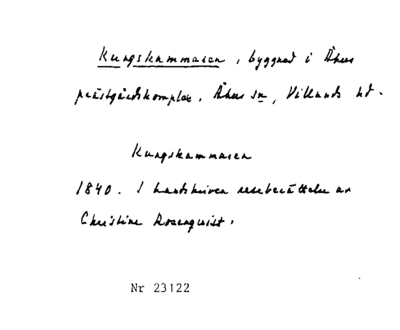 Kungskammaren, byggnad i Åhus
prästgårdskomplex, Åhus sn, Villands hd.
Kungskammaren
1840. I handskriven reseberättelse av
Christine Rosenquist.
Nr 23122